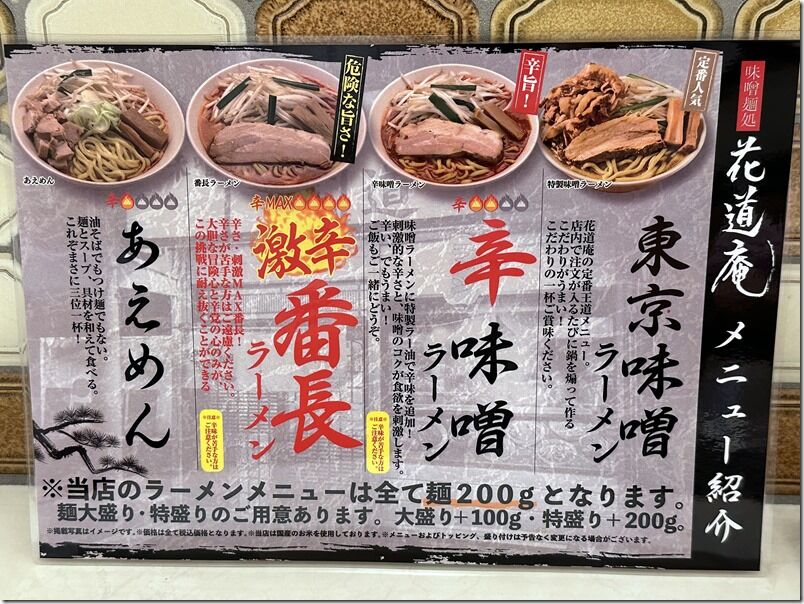 味噌麺処
花道庵
メニュー紹介
定番人気
特製味噌ラーメン
東京味噌
ラーメン
花道庵の定番王道メニュー。
店内で注文が入るたびに鍋を煽って作る
こだわりがうまい！
こだわりの一杯ご賞味ください。
辛旨！
辛味噌ラーメン
辛
辛味噌
ラーメン
味噌ラーメンに特製ラー油で辛味を追加！
刺激的な辛さと、味噌のコクが食欲を刺激します。
辛い、でもうまい！
ご飯もご一緒にどうぞ。
※注意※
辛味が苦手な方は
ご注意ください。
危険な旨さ！
番長ラーメン
辛MAX
激辛
番長
ラーメン
辛さ、刺激MAX番長！
辛さが苦手な方はご遠慮ください。
大胆な冒険心と辛党の心のみが、
この挑戦に耐え抜くことができる
※注意※
辛味が苦手な方は
ご注意ください。
あえめん
辛
あえめん
油そばでもつけ麺でもない。
麺とスープ、具材を和えて食べる。
これぞまさに三位一杯！
※当店のラーメンメニューは全て麺200gとなります。
麺大盛り・特盛りのご用意あります。大盛り+100g・特盛り+200g。
※掲載写真はイメージです。※価格は全て税込価格となります。※当店は国産のお米を使用しております。※メニューおよびトッピング、盛り付けは予告なく変更になる場合がございます。